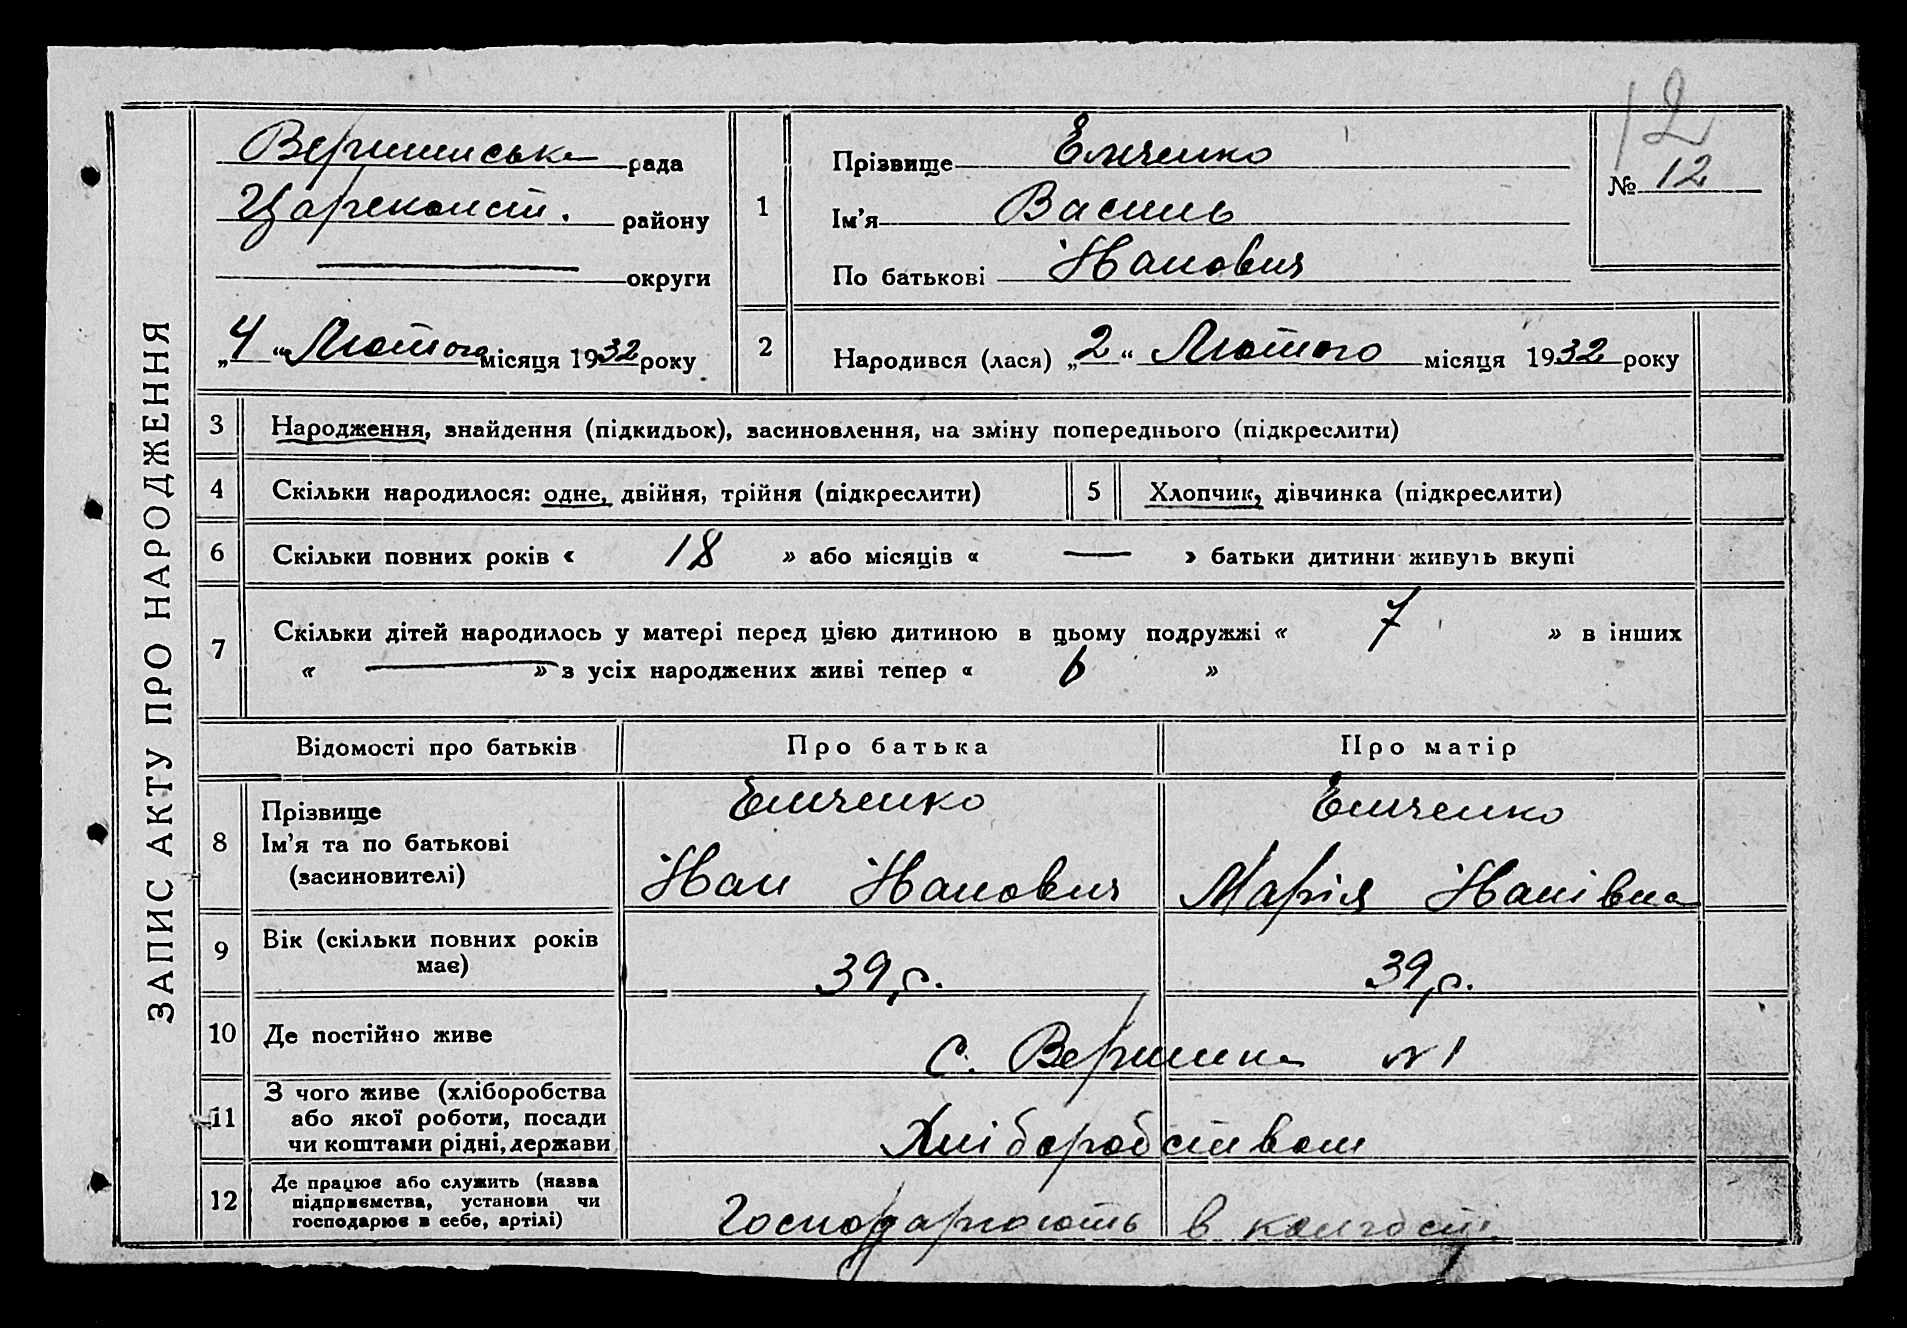 ЗАПИС АКТУ ПРО НАРОДЖЕННЯ
12
Вершинська рада
Царсконст. району
округи
„4“ Лютого місяця 1932 року
1
Прізвище Емченко
Ім’я Василь
По батькові Іванович
№ 12
2
Народився (лася) „2“ Лютого місяця 1932 року
3 Народження, знайдення (підкидьок), засиновлення, на зміну попереднього (підкреслити)
4 Скільки народилося: одне, двійня, трійня (підкреслити)
5 Хлопчик, дівчинка (підкреслити)
6 Скільки повних років « 18 » або місяців « — » батьки дитини живуть вкупі
7 Скільки дітей народилось у матері перед цією дитиною в цьому подружжі « 7 » в інших
« — » з усіх народжених живі тепер « 6 »
Відомості про батьків Про батька Про матір
8
Прізвище Емченко Емченко
Ім’я та по батькові
(засиновителі) Іван Іванович Марія Іванівна
9 Вік (скільки повних років
має) 39 р. 39 р.
10 Де постійно живе с. Вершина №1
11
З чого живе (хліборобства
або якої роботи, посади
чи коштами рідні, держави
Хліборобством
12
Де працює або служить (назва
підприємства, установи чи
господарює в себе, артілі)
Господарюють в колгоспі.